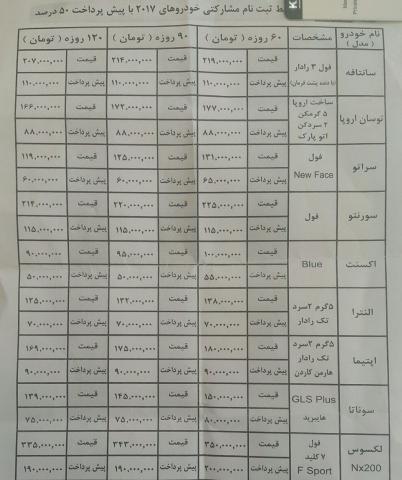 ط ثبت نام مشارکتی خودروهای ۲۰۱۷ با پیش پرداخت ۵۰ درصد
نام خودرو (مدل) مشخصات ۶۰ روزه (تومان) ۹۰ روزه (تومان) ۱۲۰ روزه (تومان)
سانتافه فول ۳ رادار قیمت ۲۱۹,۰۰۰,۰۰۰ قیمت ۲۱۴,۰۰۰,۰۰۰ قیمت ۲۰۷,۰۰۰,۰۰۰
(با دنده پشت فرمان) پیش پرداخت ۱۱۰,۰۰۰,۰۰۰ پیش پرداخت ۱۱۰,۰۰۰,۰۰۰ پیش پرداخت ۱۱۰,۰۰۰,۰۰۰
توسان اروپا ساخت اروپا ۵ گرمکن قیمت ۱۷۷,۰۰۰,۰۰۰ قیمت ۱۷۲,۰۰۰,۰۰۰ قیمت ۱۶۶,۰۰۰,۰۰۰
۲ سردکن اتو پارک پیش پرداخت ۸۸,۰۰۰,۰۰۰ پیش پرداخت ۸۸,۰۰۰,۰۰۰ پیش پرداخت ۸۸,۰۰۰,۰۰۰
سراتو فول قیمت ۱۳۱,۰۰۰,۰۰۰ قیمت ۱۲۵,۰۰۰,۰۰۰ قیمت ۱۱۹,۰۰۰,۰۰۰
New Face پیش پرداخت ۶۵,۰۰۰,۰۰۰ پیش پرداخت ۶۰,۰۰۰,۰۰۰ پیش پرداخت ۶۰,۰۰۰,۰۰۰
سورنتو فول قیمت ۲۲۵,۰۰۰,۰۰۰ قیمت ۲۲۰,۰۰۰,۰۰۰ قیمت ۲۱۴,۰۰۰,۰۰۰
پیش پرداخت ۱۱۵,۰۰۰,۰۰۰ پیش پرداخت ۱۱۵,۰۰۰,۰۰۰ پیش پرداخت ۱۱۵,۰۰۰,۰۰۰
اکسنت Blue قیمت ۱۰۰,۰۰۰,۰۰۰ قیمت ۹۵,۰۰۰,۰۰۰ قیمت ۹۰,۰۰۰,۰۰۰
پیش پرداخت ۵۵,۰۰۰,۰۰۰ پیش پرداخت ۵۰,۰۰۰,۰۰۰ پیش پرداخت ۵۰,۰۰۰,۰۰۰
النترا ۵گرم ۲سرد قیمت ۱۳۸,۰۰۰,۰۰۰ قیمت ۱۳۲,۰۰۰,۰۰۰ قیمت ۱۲۵,۰۰۰,۰۰۰
تک رادار پیش پرداخت ۷۰,۰۰۰,۰۰۰ پیش پرداخت ۷۰,۰۰۰,۰۰۰ پیش پرداخت ۷۰,۰۰۰,۰۰۰
اپتیما ۵گرم ۲سرد تک رادار قیمت ۱۸۰,۰۰۰,۰۰۰ قیمت ۱۷۵,۰۰۰,۰۰۰ قیمت ۱۶۹,۰۰۰,۰۰۰
هارمن کاردن پیش پرداخت ۹۰,۰۰۰,۰۰۰ پیش پرداخت ۹۰,۰۰۰,۰۰۰ پیش پرداخت ۹۰,۰۰۰,۰۰۰
سوناتا GLS Plus قیمت ۱۵۰,۰۰۰,۰۰۰ قیمت ۱۴۵,۰۰۰,۰۰۰ قیمت ۱۳۹,۰۰۰,۰۰۰
هایبرید پیش پرداخت ۸۰,۰۰۰,۰۰۰ پیش پرداخت ۷۵,۰۰۰,۰۰۰ پیش پرداخت ۷۵,۰۰۰,۰۰۰
لکسوس فول ۷ کلید قیمت ۳۵۰,۰۰۰,۰۰۰ قیمت ۳۴۳,۰۰۰,۰۰۰ قیمت ۳۳۵,۰۰۰,۰۰۰
Nx200 F Sport پیش پرداخت ۲۰۰,۰۰۰,۰۰۰ پیش پرداخت ۱۹۰,۰۰۰,۰۰۰ پیش پرداخت ۱۹۰,۰۰۰,۰۰۰